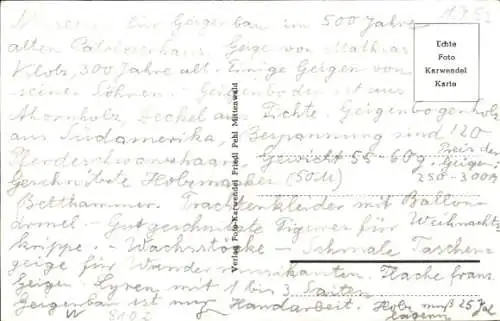 Museum für Geigenbau im 500 Jahre
alten Patrizierhaus, Geige von Mathias
Klotz, 300 Jahre alt. Einige Geigen von
seinen Söhnen. Geigenboden ist aus
Ahornholz, Deckel aus Fichte, Geigenbogenholz
aus Südamerika, Bespannung sind 120
Pferdeschwanzhaare, Gewicht 55-60 g,
Preis der
Geigen
250-300
Geschnitzte Hobzmacker (50 M)
Betthammer. Trachtenkleider mit Ballon-
ärmel - Gutgeschnitzte Figuren für Weihnachts
krippe. - Wachsstöcke - Schmale Taschen-
geige für Wandermusikanten. Flache franz.
Geigen. Lyren mit 1 bis 3 Saiten
Geigenbau ist nur Handarbeit. Holz muß 25 Jah
lagern
W 8102
1952
Echte
Foto
Karwendel
Karte
Verlag Foto-Karwendel Friedl Pehl Mittenwald